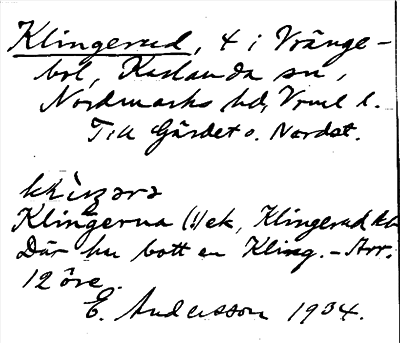 Klingerud, 4 i Vränge-
bol, Karlanda sn,
Nordmarks hd, Vrml l.
Till Gärdet o. Nordst.
Klingerna (!) ek, Klingerud kb
Där hu bott en Kling. - Arr.
12 öre.
E. Andersson 1934.